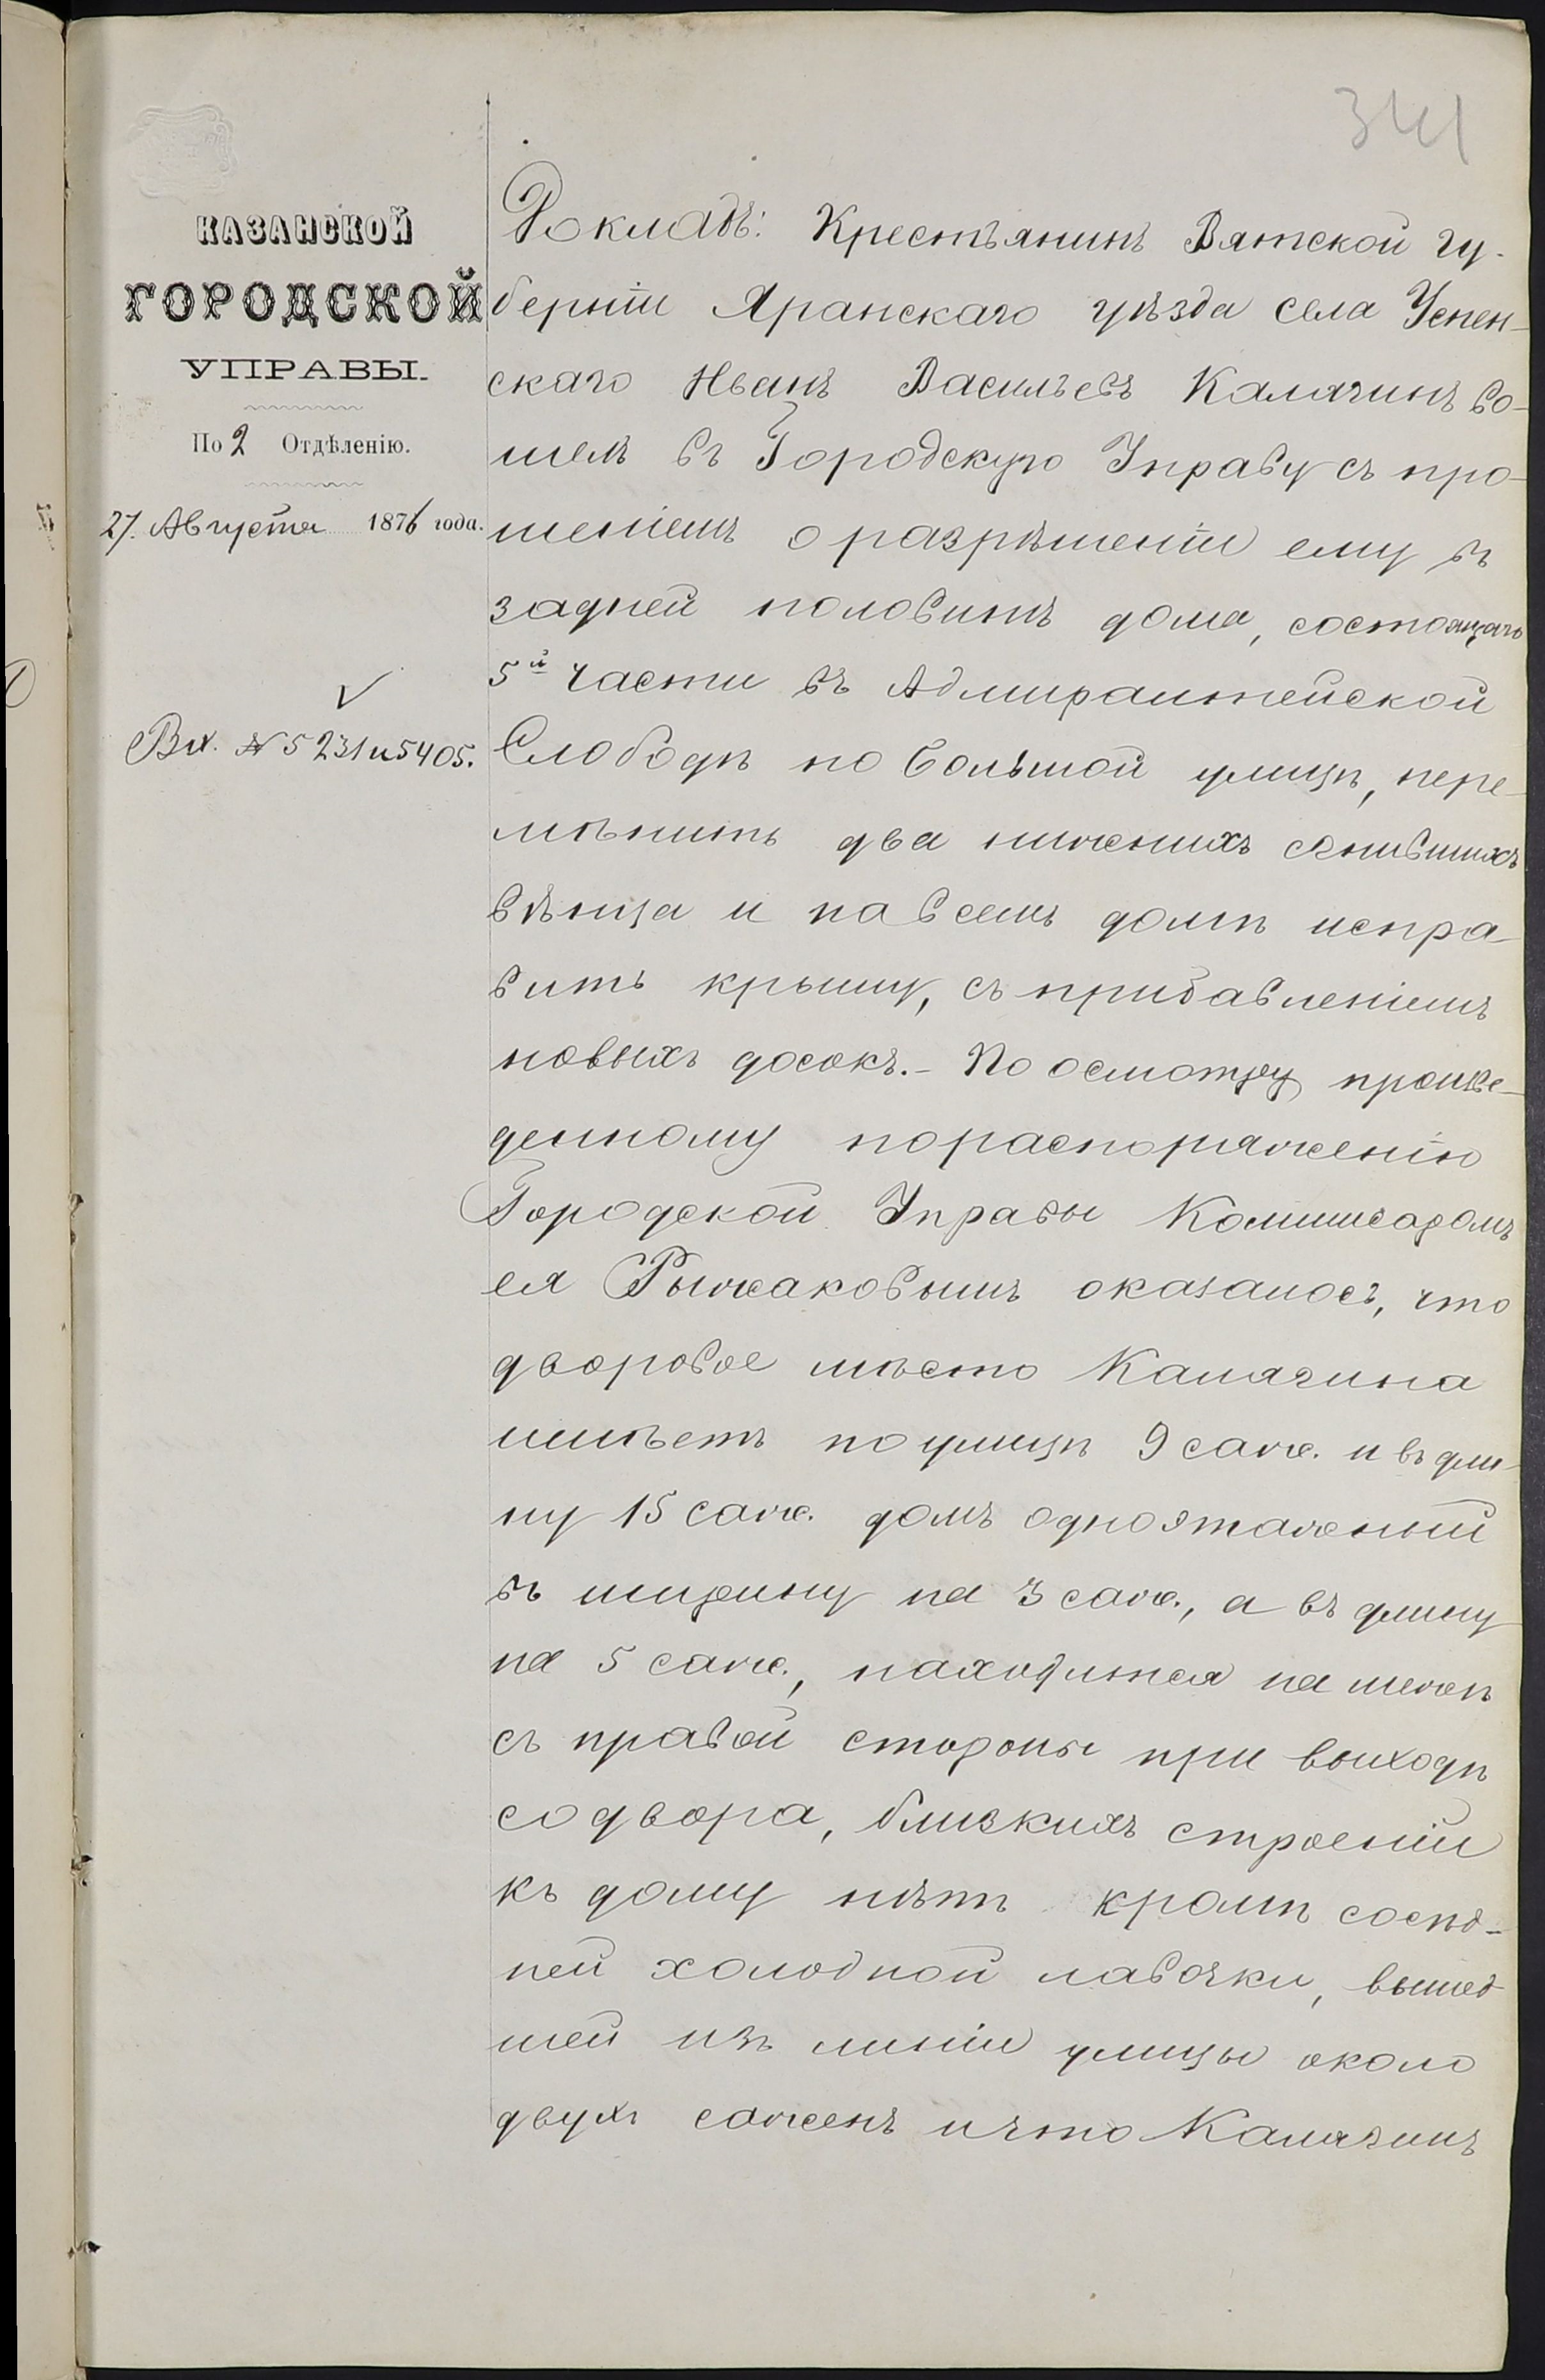 341
КАЗАНСКОЙ
ГОРОДСКОЙ
УПРАВЫ.
По 2 Отдѣленію.
27. Августа 1876 года.
Вх. № 5231 и 5405.
Докладъ: Крестьянинъ Вятской гу-
берніи Яранскаго уѣзда села Успен-
скаго Иванъ Васильевъ Калягинъ во-
шелъ въ Городскую Управу съ про-
шеніемъ о разрѣшеніи ему въ
задней половинѣ дома, состоящаго
5й части въ Адмиралтейской
Слободѣ по большой улицѣ, пере-
мѣнить два нижнихъ сгнившихъ
вѣнца и на всемъ домѣ испра-
вить крышу, съ прибавленіемъ
новыхъ досокъ.- По осмотру произве-
денному по распоряженію
Городской Управы Коммисаромъ
ея Рыжаковымъ оказалось, что
дворовое мѣсто Калягина
имѣетъ по улицѣ 9 саж. и въ дли-
ну 15 саж. домъ одноэтажный
въ ширину на 3 саж., а въ длину
на 5 саж., находится на межѣ
съ правой стороны при выходѣ
со двора, близкихъ строеній
къ дому нѣтъ кромѣ сосѣд-
ней холодной лавочки, вышед
шей изъ линіи улицы около
двухъ саженъ и что Калягинъ